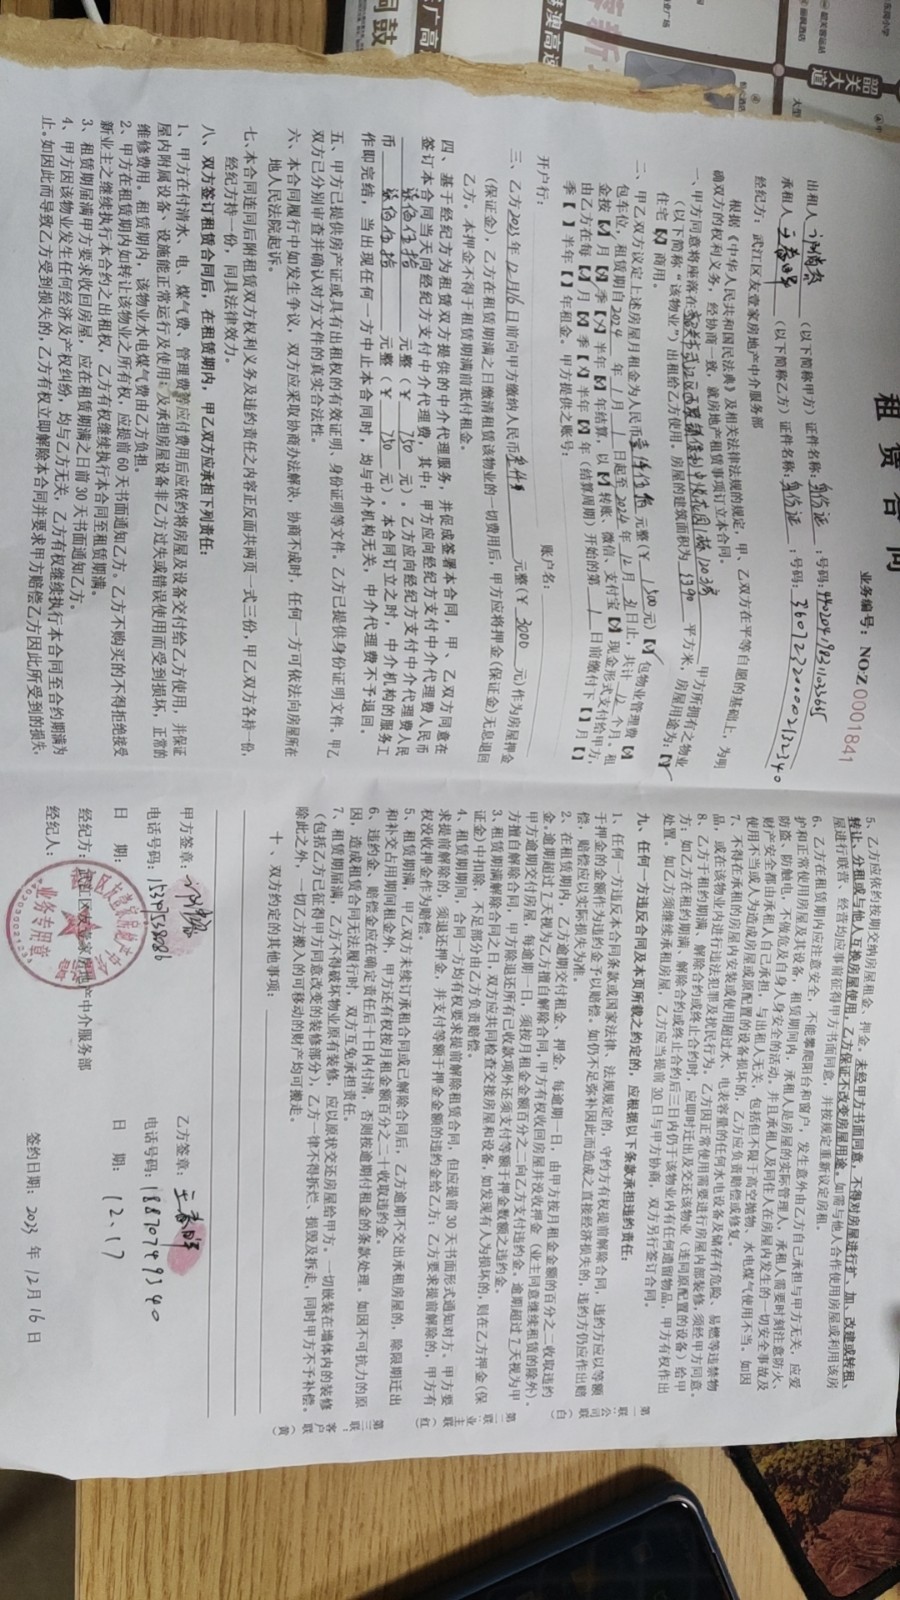 租 赁 合 同
业务编号：NOZ 0001841
出租人 （以下简称甲方）证件名称：身份证：号码：
承租人 （以下简称乙方）证件名称：身份证：号码：360723200002132340
经纪方：武江区友壹家房地产中介服务部
根据《中华人民共和国民法典》及相关法律法规的规定，甲、乙双方在平等自愿的基础上，为明
确双方的权利义务，经协商一致，就房地产租赁事项订立本合同。
一、甲方同意将座落在 甲方所拥有之物业
（以下简称“该物业”）出租给乙方使用，房屋的建筑面积为 平方米，房屋用途为：【✓】
住宅【×】商用。
二、甲乙双方议定上述房屋月租金为人民币壹仟伍佰元整（￥1500元）【✓】包物业管理费【×】
包车位，租赁期自2024年1月1日起至2024年12月31日止，共计12个月。租
金按【 】月【 】季【 】半年【 】年结算，以【 】转账、微信、支付宝【 】现金形式支付给甲方，
由乙方在每【 】月【 】季【 】半年【 】年（结算周期）开始的第1日前缴付下【 】月【 】
季【 】半年【 】年租金。甲方提供之账号：
开户行： 账户名：
三、乙方2023年12月16日前向甲方缴纳人民币叁仟元整（￥3000元）作为房屋押金
（保证金），乙方在租赁期满之日缴清租赁该物业的一切费用后，甲方应将押金（保证金）无息退回
乙方。本押金不得于租赁期满前抵付租金。
四、基于经纪方为租赁双方提供的中介代理服务，并促成签署本合同，甲、乙双方同意在
签订本合同当天向经纪方支付中介代理费，其中：甲方应向经纪方支付中介代理费人民币
柒佰伍拾元整（￥750元），乙方应向经纪方支付中介代理费人民
币柒佰伍拾元整（￥750元），本合同订立之时，中介机构的服务工
作即完结，当出现任何一方中止本合同时，均与中介机构无关，中介代理费不予退回。
五、甲方已提供房产证或具有出租权的有效证明、身份证明等文件，乙方已提供身份证明文件。甲乙
双方已分别审查并确认对方文件的真实合法性。
六、本合同履行中如发生争议，双方应采取协商办法解决，协商不成时，任何一方可依法向房屋所在
地人民法院起诉。
七、本合同连同后附租赁双方权利义务及违约责任之内容正反面共两页一式三份，甲乙双方各持一份，
经纪方持一份，同具法律效力。
八、双方签订租赁合同后，在租赁期内，甲乙双方应承担下列责任：
1、甲方在付清水、电、煤气费、管理费等应付费用后应依约将房屋及设备交付给乙方使用，并保证
屋内附属设备、设施能正常运行及使用；及承担房屋设备非乙方过失或错误使用而受到损坏，正常的
维修费用。租赁期内，该物业水电煤气费由乙方负担。
2、甲方在租赁期内如转让该物业之所有权，应提前60天书面通知乙方。乙方不购买的不得拒绝接受
新业主之继续执行本合约之出租权，乙方有权继续执行本合同至租赁期满。
3、租赁期届满甲方要求收回房屋，应在租赁期满之日前30天书面通知乙方。
4、甲方因该物业发生任何经济及产权纠纷，均与乙方无关，乙方有权继续执行本合同至合约期满为
止。如因此而导致乙方受到损失的，乙方有权立即解除本合同并要求甲方赔偿乙方因此所受到的损失。
5、乙方应依约按期交纳房屋租金、押金。未经甲方书面同意，不得对房屋进行扩、加、改建或转租、
转让、分租或与他人互换房屋使用，乙方保证不改变房屋用途。如需与他人合作使用房屋或利用该房
屋进行联营、经营均应事前征得甲方书面同意，并按规定重新议定房租。
6、乙方在租赁期内应注意安全，不能攀爬阳台和窗户，发生意外由乙方自己承担与甲方无关，应爱
护和正常使用房屋及其设备，租赁期间内，承租人是房屋的实际管理人，承租人需要时刻注意防火、
防盗、防触电，不做危及自身人身安全的活动，并且承租人及同住人在房屋内发生的一切安全事故及
财产安全都由承租人自己承担，与出租人无关，包括但不限于高空抛物、水电煤气使用不当。如因
使用不当或人为造成房屋或原配置的设备损坏的，乙方应负责赔偿或修复。
7、不得在承租的房屋内安装或使用超过水、电表容量的任何水电设备及储存有危险、易燃等违禁物
品，或在该物业内进行违法犯罪及扰民行为。乙方因正常使用需要进行房屋内部装修，须经甲方同意。
8、乙方于租约期满、解除合约或终止合约时，应即时迁出及交还该物业（连同原配置的设备）给甲
方；如乙方在租约期满、解除合约或终止合约后三日内仍于该物业内有任何遗留物品，甲方有权作出
处置。如乙方须继续承租房屋，乙方应当提前30日与甲方协商，双方另行签订合同。
九、任何一方违反合同及本页所载之约定的，应根据以下条款承担违约责任：
1、任何一方违反本合同条款或国家法律、法规规定的，守约方有权提前解除合同，违约方应以等额
于押金的金额作为违约金予以赔偿。如仍不足弥补因此而造成之直接经济损失的，违约方仍应作出赔
偿，赔偿应以实际损失为准。
2、在租赁期内，乙方逾期交付租金、押金，每逾期一日，由甲方按月租金金额的百分之二收取违约
金；逾期超过7天视为乙方擅自解除合同，甲方有权收回房屋并没收押金（业主同意继续租赁的除外）。
甲方逾期交付房屋，每逾期一日，须按月租金金额百分之二向乙方支付违约金，逾期超过7天视为甲
方擅自解除合同，甲方除退还所有已收款项外还须支付等额于押金数额之违约金。
3、租赁期满或解除合同之日，双方应共同检查交接房屋和设备，如发现有人为损坏的，则在乙方押金（保
证金）中扣除，不足部分由乙方负责赔偿。
4、租赁期期间，合同一方均有权要求提前解除租赁合同，但应提前30天书面形式通知对方，甲方要
求提前解除的，须退还押金，并支付等额于押金金额的违约金给乙方；乙方要求提前解除的，甲方有
权没收押金作为赔偿。
5、租赁期期满，甲乙双方未续订承租合同或已解除合同后，乙方逾期不交出承租房屋的，除限期迁出
和补交占用期间租金外，甲方还有权按月租金额百分之二十收取违约金。
6、违约金、赔偿金应在确定责任后十日内付清，否则按逾期付租金的条款处理。如因不可抗力的原
因，造成租赁合同无法履行时，双方互免承担责任。
7、租赁期届满，乙方不得破坏物业原有装修，应以原状交还房屋给甲方。一切嵌装在墙体内的装修
（包括乙方已征得甲方同意改变的装修部分），乙方一律不得拆烂、损毁及拆走，同时甲方不予补偿。
除此之外，一切乙方搬入的可移动的财产均可搬走。
十、双方约定的其他事项：
甲方签章： 乙方签章：
电话号码： 电话号码：18707949340
日 期： 日 期：12.17
经纪方：武江区友壹家房地产中介服务部
经纪人： 签约日期：2023年12月16日
业务专用章
第一联：公司（白）
第二联：业主（红）
第三联：客户（黄）
韶关大道